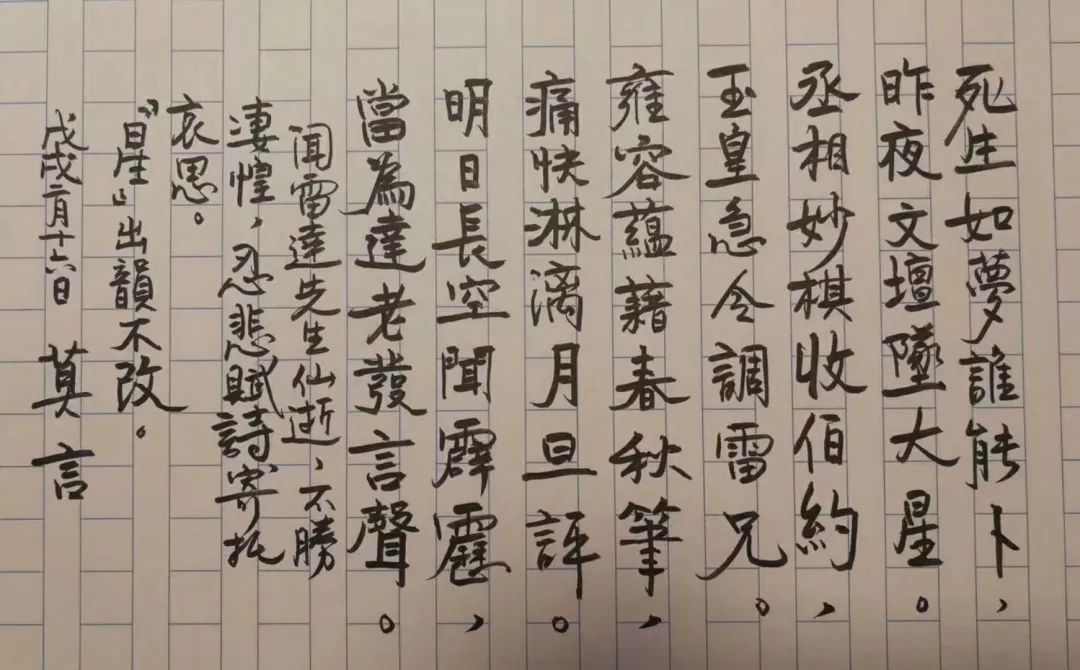 死生如夢誰能卜、
昨夜文壇墜大星。
丞相妙棋收伯約、
玉皇急令調雷兄。
雍容蘊藉春秋筆、
痛快淋漓月旦評。
明日長空聞霹靂、
當為達老發言聲。
闻雷達先生仙逝、不勝
凄惶、忍悲賦詩寄托
哀思。
“星”出韻不改。
戊戌二月十六日 莫言